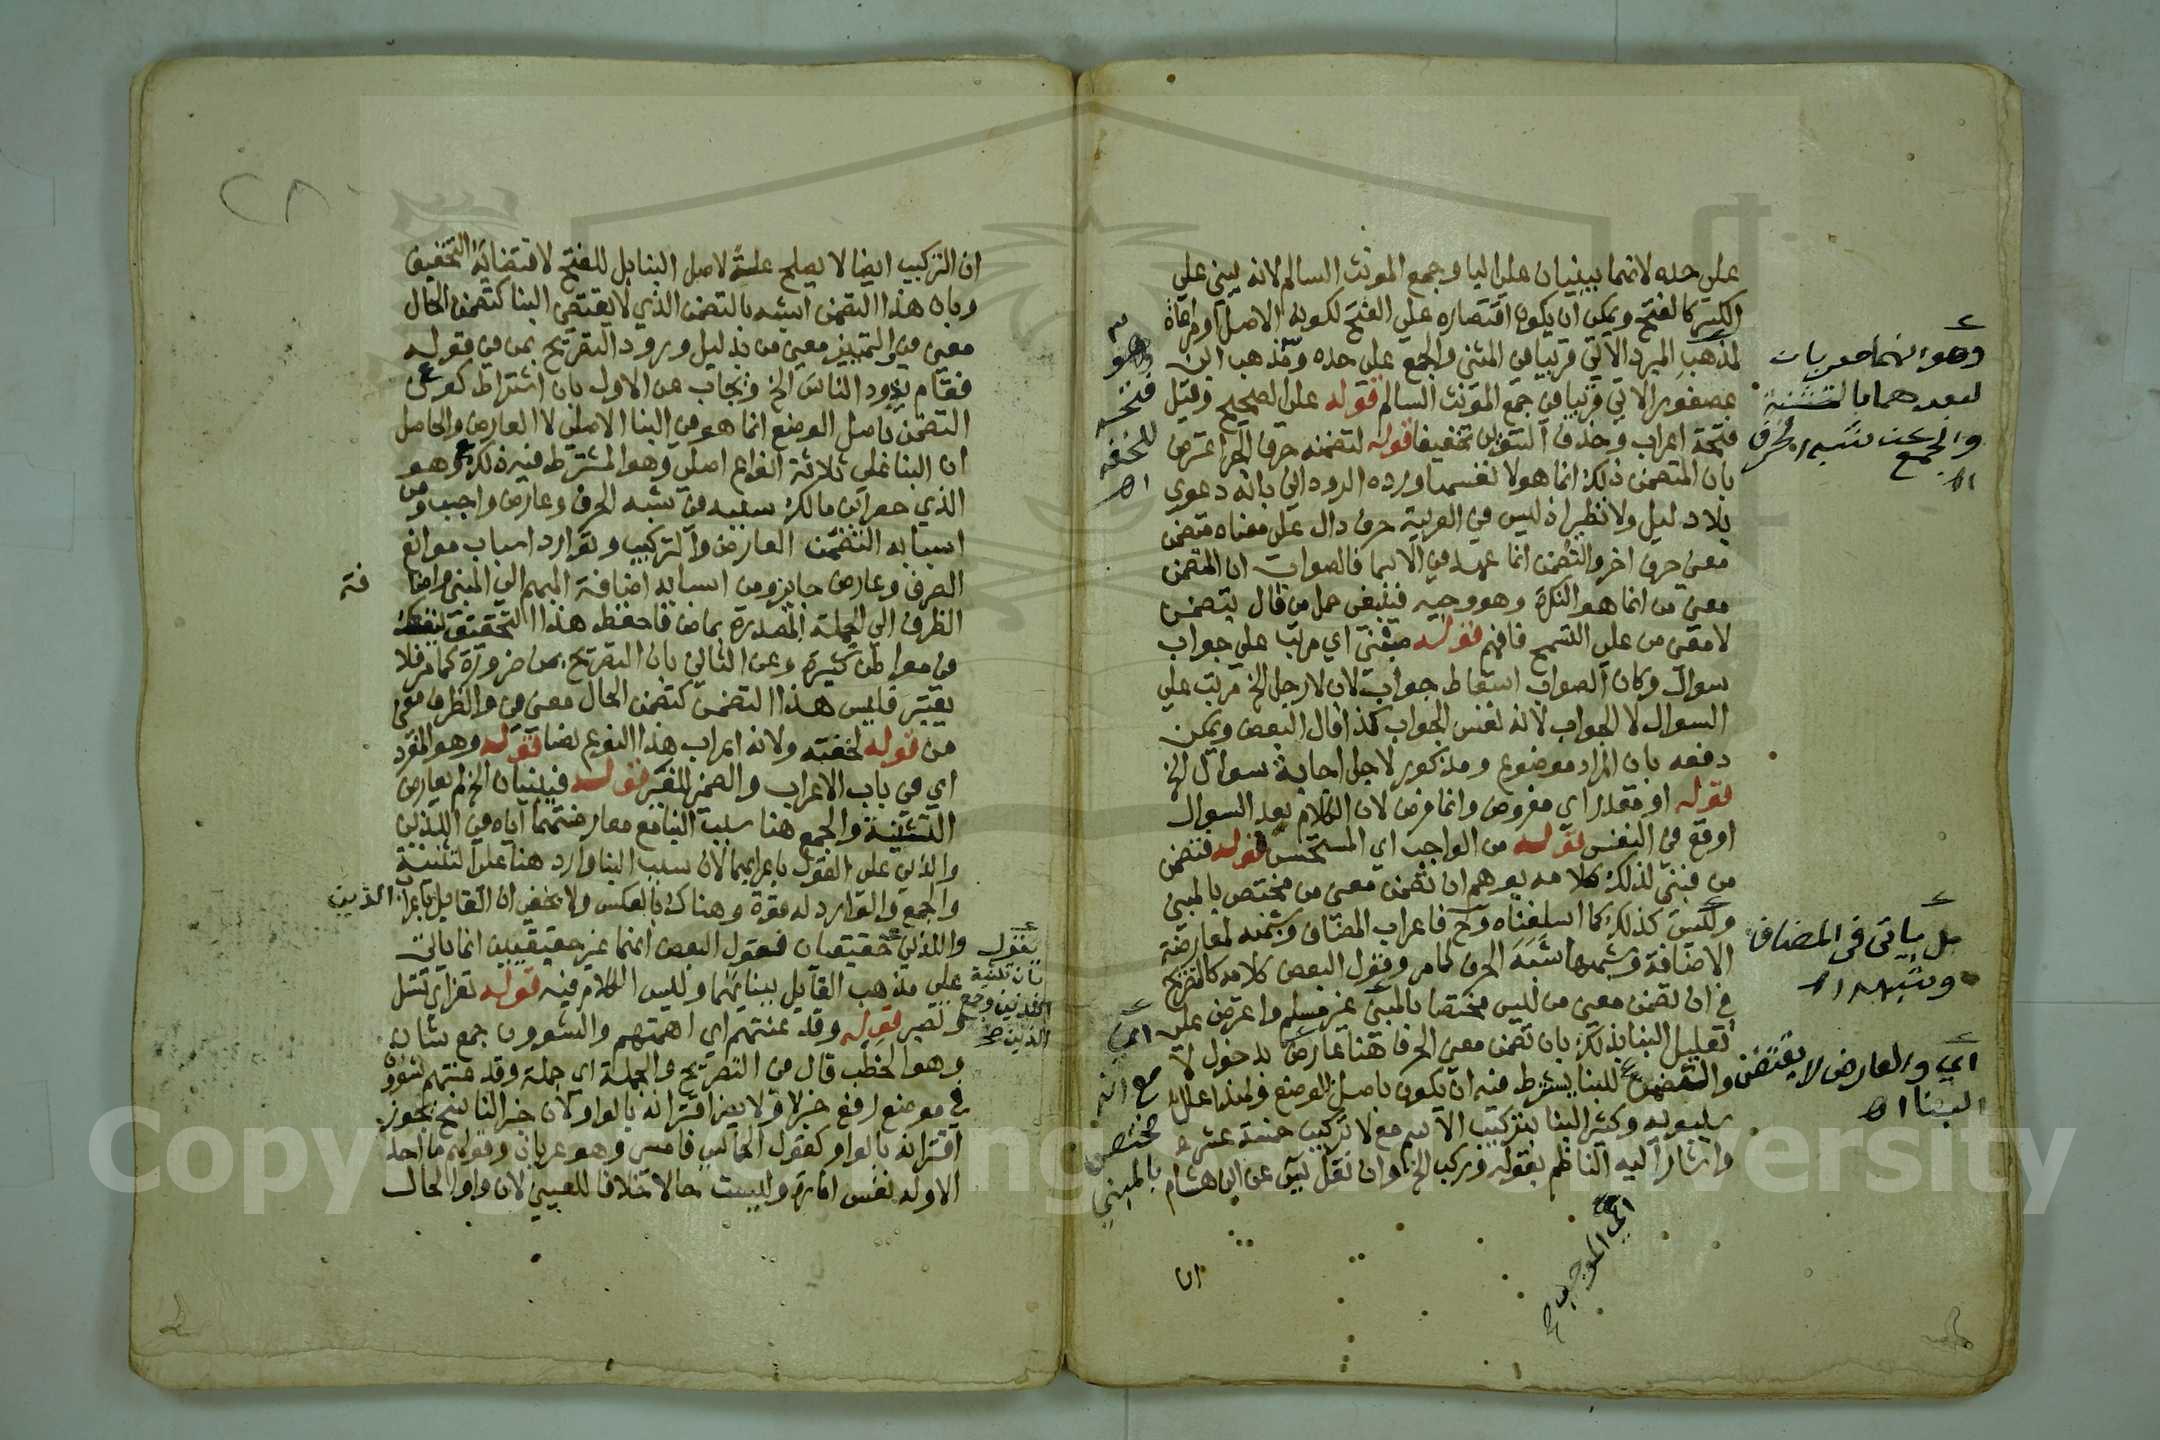 على حده لانهما يبنيان على اليا وجمع المونث السالم لانه يبنى على
الكسر كالفتح ويمكن ان يكون اقتصاره على الفتح لكونه الاصل او مراعاة
لمذهب المبرد الاتي قريبا في المثنى والجمع على حده ومذهب ابن
عصفور الاتي قريبا في جمع المونث السالم قوله على الصحيح وقيل
فتحة اعراب وحذف التنوين تخفيفا قوله لتضمنه حرف الجر اعترض
بان المتضمن ذلك انما هو لا نفسها ورده الروداني بانه دعوى
بلا دليل ولا نظير اذ ليس في العربية حرف دال على معناه متضمن
معنى حرف اخر والتضمن انما عهد في الاسما فالصواب ان المتضمن
معنى من انما هو النكرة وهو وجيه فينبغي حمل من قال بتضمن
لا معنى من على التسمح فافهم قوله مبني اي مرتب على جواب
سوال وكان الصواب اسقاط جواب لان لا رجل الخ مرتب على
السوال لا الجواب لانه نفس الجواب كذا قال البعض ويمكن
دفعه بان المراد موضوع ومذكور لاجل اجابة سوال الخ
قوله او مقدر اي مفروض وانما فرض لان الكلام بعد السوال
اوقع في النفس قوله من الواجب اي المستحسن قوله فتضمن
من فبني لذلك كلامه يوهم ان تضمن معنى من مختص بالمبني
وليس كذلك كما اسلفناه وح فاعراب المضاف وشبهه لمعارضة
الاضافة وشبهها شبه الحرف كما مر وقول البعض كلامه كالصريح
في ان تضمن معنى من ليس مختصا بالمبني غير مسلم واعترض على
تعليل البنا بذلك بان تضمن معنى الحرف هنا عارض بدخول لا
والتضمن للبنا يشترط فيه ان يكون باصل الوضع ولهذا علل
سيبويه وكثير البنا بتركيب الاسم مع لا تركيب خمسة عشر
واشار اليه الناظم بقوله وركب الخ وان نقل يس عن ابن هشام
ان
وهو انهما معربان
لبعدهما بالتثنية
والجمع عن شبه الحرف
اه
وهو
فتحه
للخفة
اه
بل ياتي في المضاف
وشبهه اه
اي والعارض لا يقتضي
البنا اه
اي
مع انه
مختص
بالمبني
اي الموجب
ان التركيب ايضا لا يصلح علة لاصل البنا بل للفتح لاقتضائه التخفيف
وبان هذا التضمن اشبه بالتضمن الذي لا يقتضي البنا كتضمن الحال
معنى في والتمييز معنى من بدليل ورود التصريح بمن في قوله
فقام يذود الناس الخ ويجاب عن الاول بان اشتراط كون
التضمن باصل الوضع انما هو في البنا الاصلي لا العارض والحاصل
ان البنا على ثلاثة انواع اصلي وهو المشترط فيه ذلك وهو
الذي حصر ابن مالك سببه في شبه الحرف وعارض واجب ومن
اسبابه التضمن العارض والتركيب وتوارد اسباب موانع
الصرف وعارض جايز ومن اسبابه اضافة المبهم الى المبني واضافة
الظرف الى الجملة المصدرة بماض فاحفظ هذا التحقيق ينفعك
في مواطن كثيرة وعن الثاني بان التصريح بمن ضرورة كما مر فلا
يعتبر فليس هذا التضمن كتضمن الحال معنى في والظرف معنى
من قوله لخفته ولانه اعراب هذا النوع نصا قوله وهو المفرد
اي في باب الاعراب والضمير للمفسر قوله فيبنيان الخ لم يعارض
التثنية والجمع هنا سبب البنا مع معارضتهما اياه في اللذين
والذين على القول باعرابهما لان سبب البنا وارد هنا على التثنية
والجمع والوارد له قوة وهناك بالعكس ولا يخفى ان القايل باعراب الذين
واللذين حقيقيان فقول البعض انهما غير حقيقيين انما ياتي
على مذهب القايل ببنائهما وليس الكلام فيه قوله تعز اي تسل
وتصبر قوله وقد عنتهم اي اهمتهم والشوون جمع شان
وهو الخطب قال في التصريح والجملة اي جملة وقد عنتهم شوون
في موضع رفع خبر لا ولا يضر اقترانه بالواو لان خبر الناسخ يجوز
اقترانه بالواو كقول الحماسي فامسى وهو عريان وقولهم ما احد
الا وله نفس امارة وليست حالا خلافا للعيني لان واو الحال
يقول
بان تثنية
اللذين وجمع
الذين